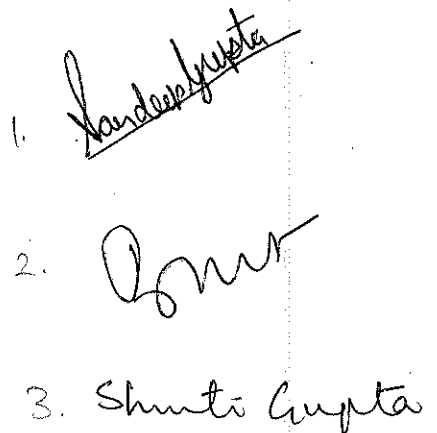 1. Sandeep Gupta
2.
3. Shruti Gupta